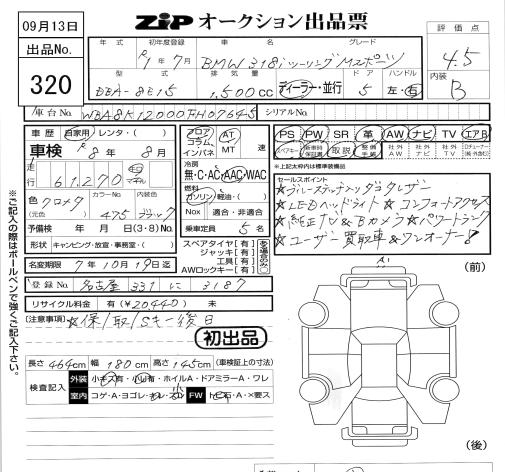 09月13日
ZIP オークション出品票
出品No.
320
年式 初年度登録 車名 グレード
R1年 7月 BMW 318iツーリング Mスポーツ
評価点
4.5
型式 排気量 ドア ハンドル
DBA-8E15 1,500cc ディーラー・並行 5 左・右
内装
B
車台No. WBA8K12000FH07645 シリアルNo.
車歴 自家用・レンタ・( )
車検 R8年 8月
走行 61,270 km マイル
色 クロメタ カラーNo. 475 内装色 ブラック
(元色)
予備検 年 月 日 (3・8) No.
形状 キャンピング・放宣・事務室・( )
フロア コラム インパネ AT MT 速
冷房
無・C・AC・AAC・WAC
燃料
ガソリン・軽油・( )
Nox 適合・非適合
乗車定員 5名
スペアタイヤ[有]
ジャッキ[有]
工具[有]
AWロックキー[有]
PS PW SR 革 AW ナビ TV エアB
スペアキー 新車時保証書 取説 整備手帳 社外AW 社外ナビ 社外TV
*上記太枠内は標準装備品
セールスポイント
★ブルーステッチ付ダコタレザー
★LEDヘッドライト ★コンフォートアクセス
★純正TV&Bカメラ ★パワートランク
★ユーザー買取車&ワンオーナー!
名変期限 7年10月19日迄
登録No. 名古屋 331 に 3187
リサイクル料金 有(¥20,440) 未
(注意事項) ★保/取/Sキー後日
初出品
長さ 464cm 幅 180cm 高さ 145cm (車検証上の寸法)
検査記入 外装 小キズ有・小凹有・ホイルA・ドアミラーA・ワレ
室内 コゲ・A・ヨゴレ FW トビ石・A・×要ス
(前)
(後)
※ご記入の際はボールペンで強くご記入下さい。